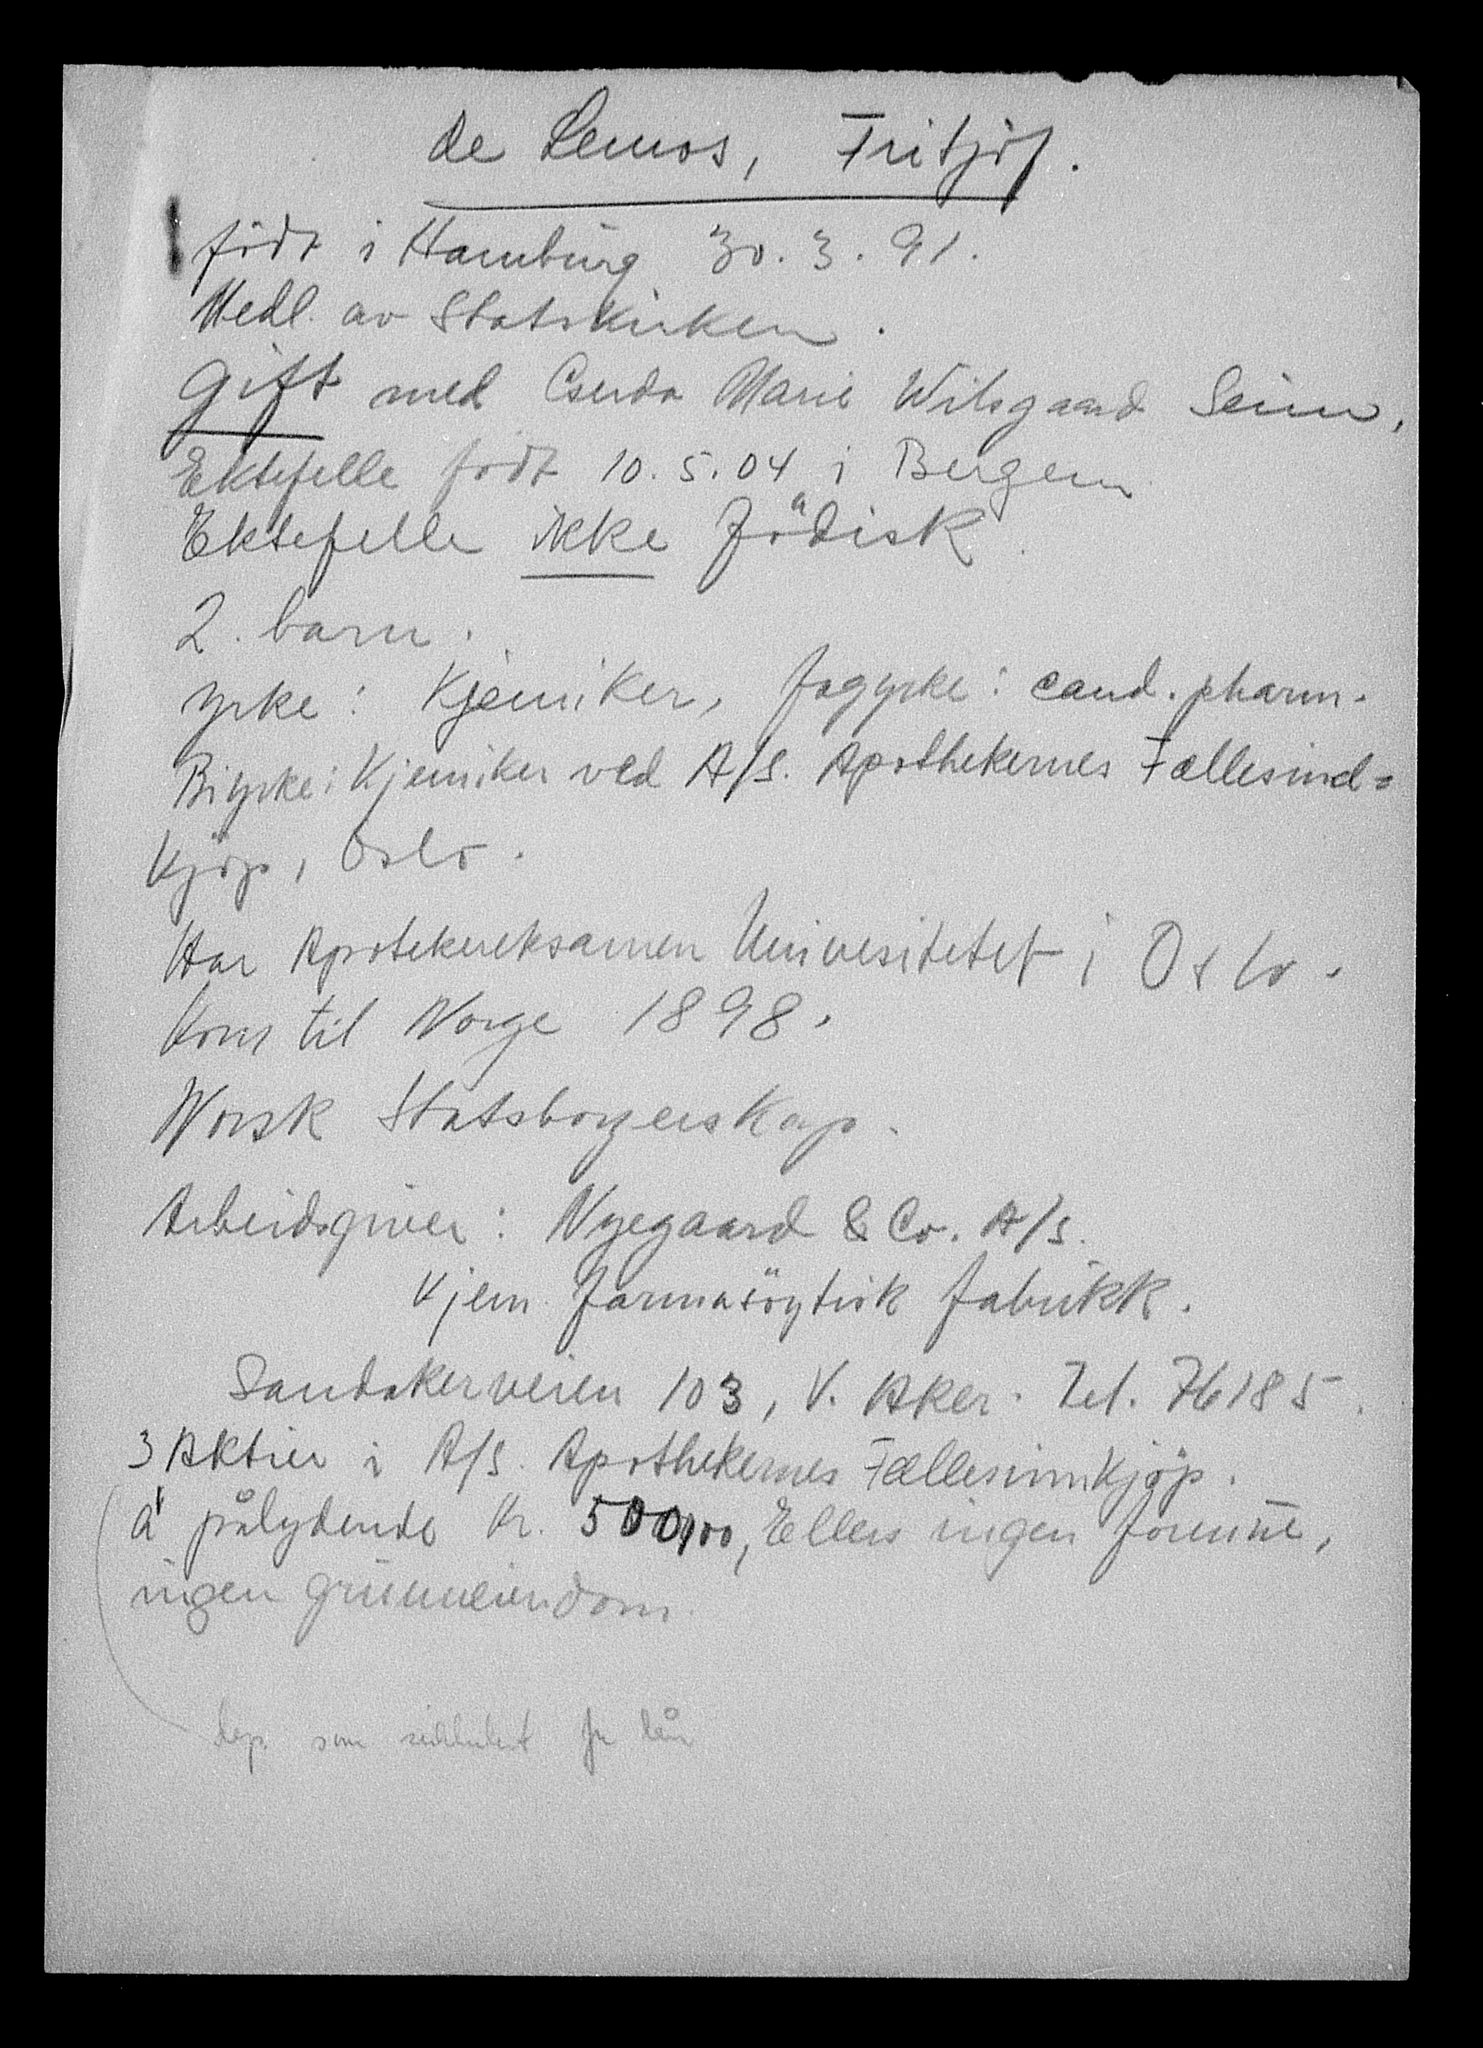 de Lemos, Fritjöf.
födt i Hamburg 30.3.91.
Medl. av Statskirken.
Gift med Gerda Marie Wilsgaard Seim,
Ektefelle födt 10.5.04 i Bergen
Ektefelle ikke jödisk.
2. barn.
Yrke: Kjemiker, fagyrke: cand. pharm.
Biyrke: Kjemiker ved A/S. Apothekernes Fællesind=
kjöp, Oslo.
Har Apotekereksamen Universitetet i Oslo.
Kom til Norge 1898.
Norsk Statsborgerskap.
Arbeidsgiver: Nyegaard & Co. A/S.
Kjem. farmasöytisk fabrikk.
Sandakerveien 103, V. Aker. Tel. 76185.
3 Aktier i A/S. Apothekernes Fællesinnkjöp.
á pålydende Kr. 500,00, Ellers ingen formue,
ingen grunneiendom.
dep. som for lån